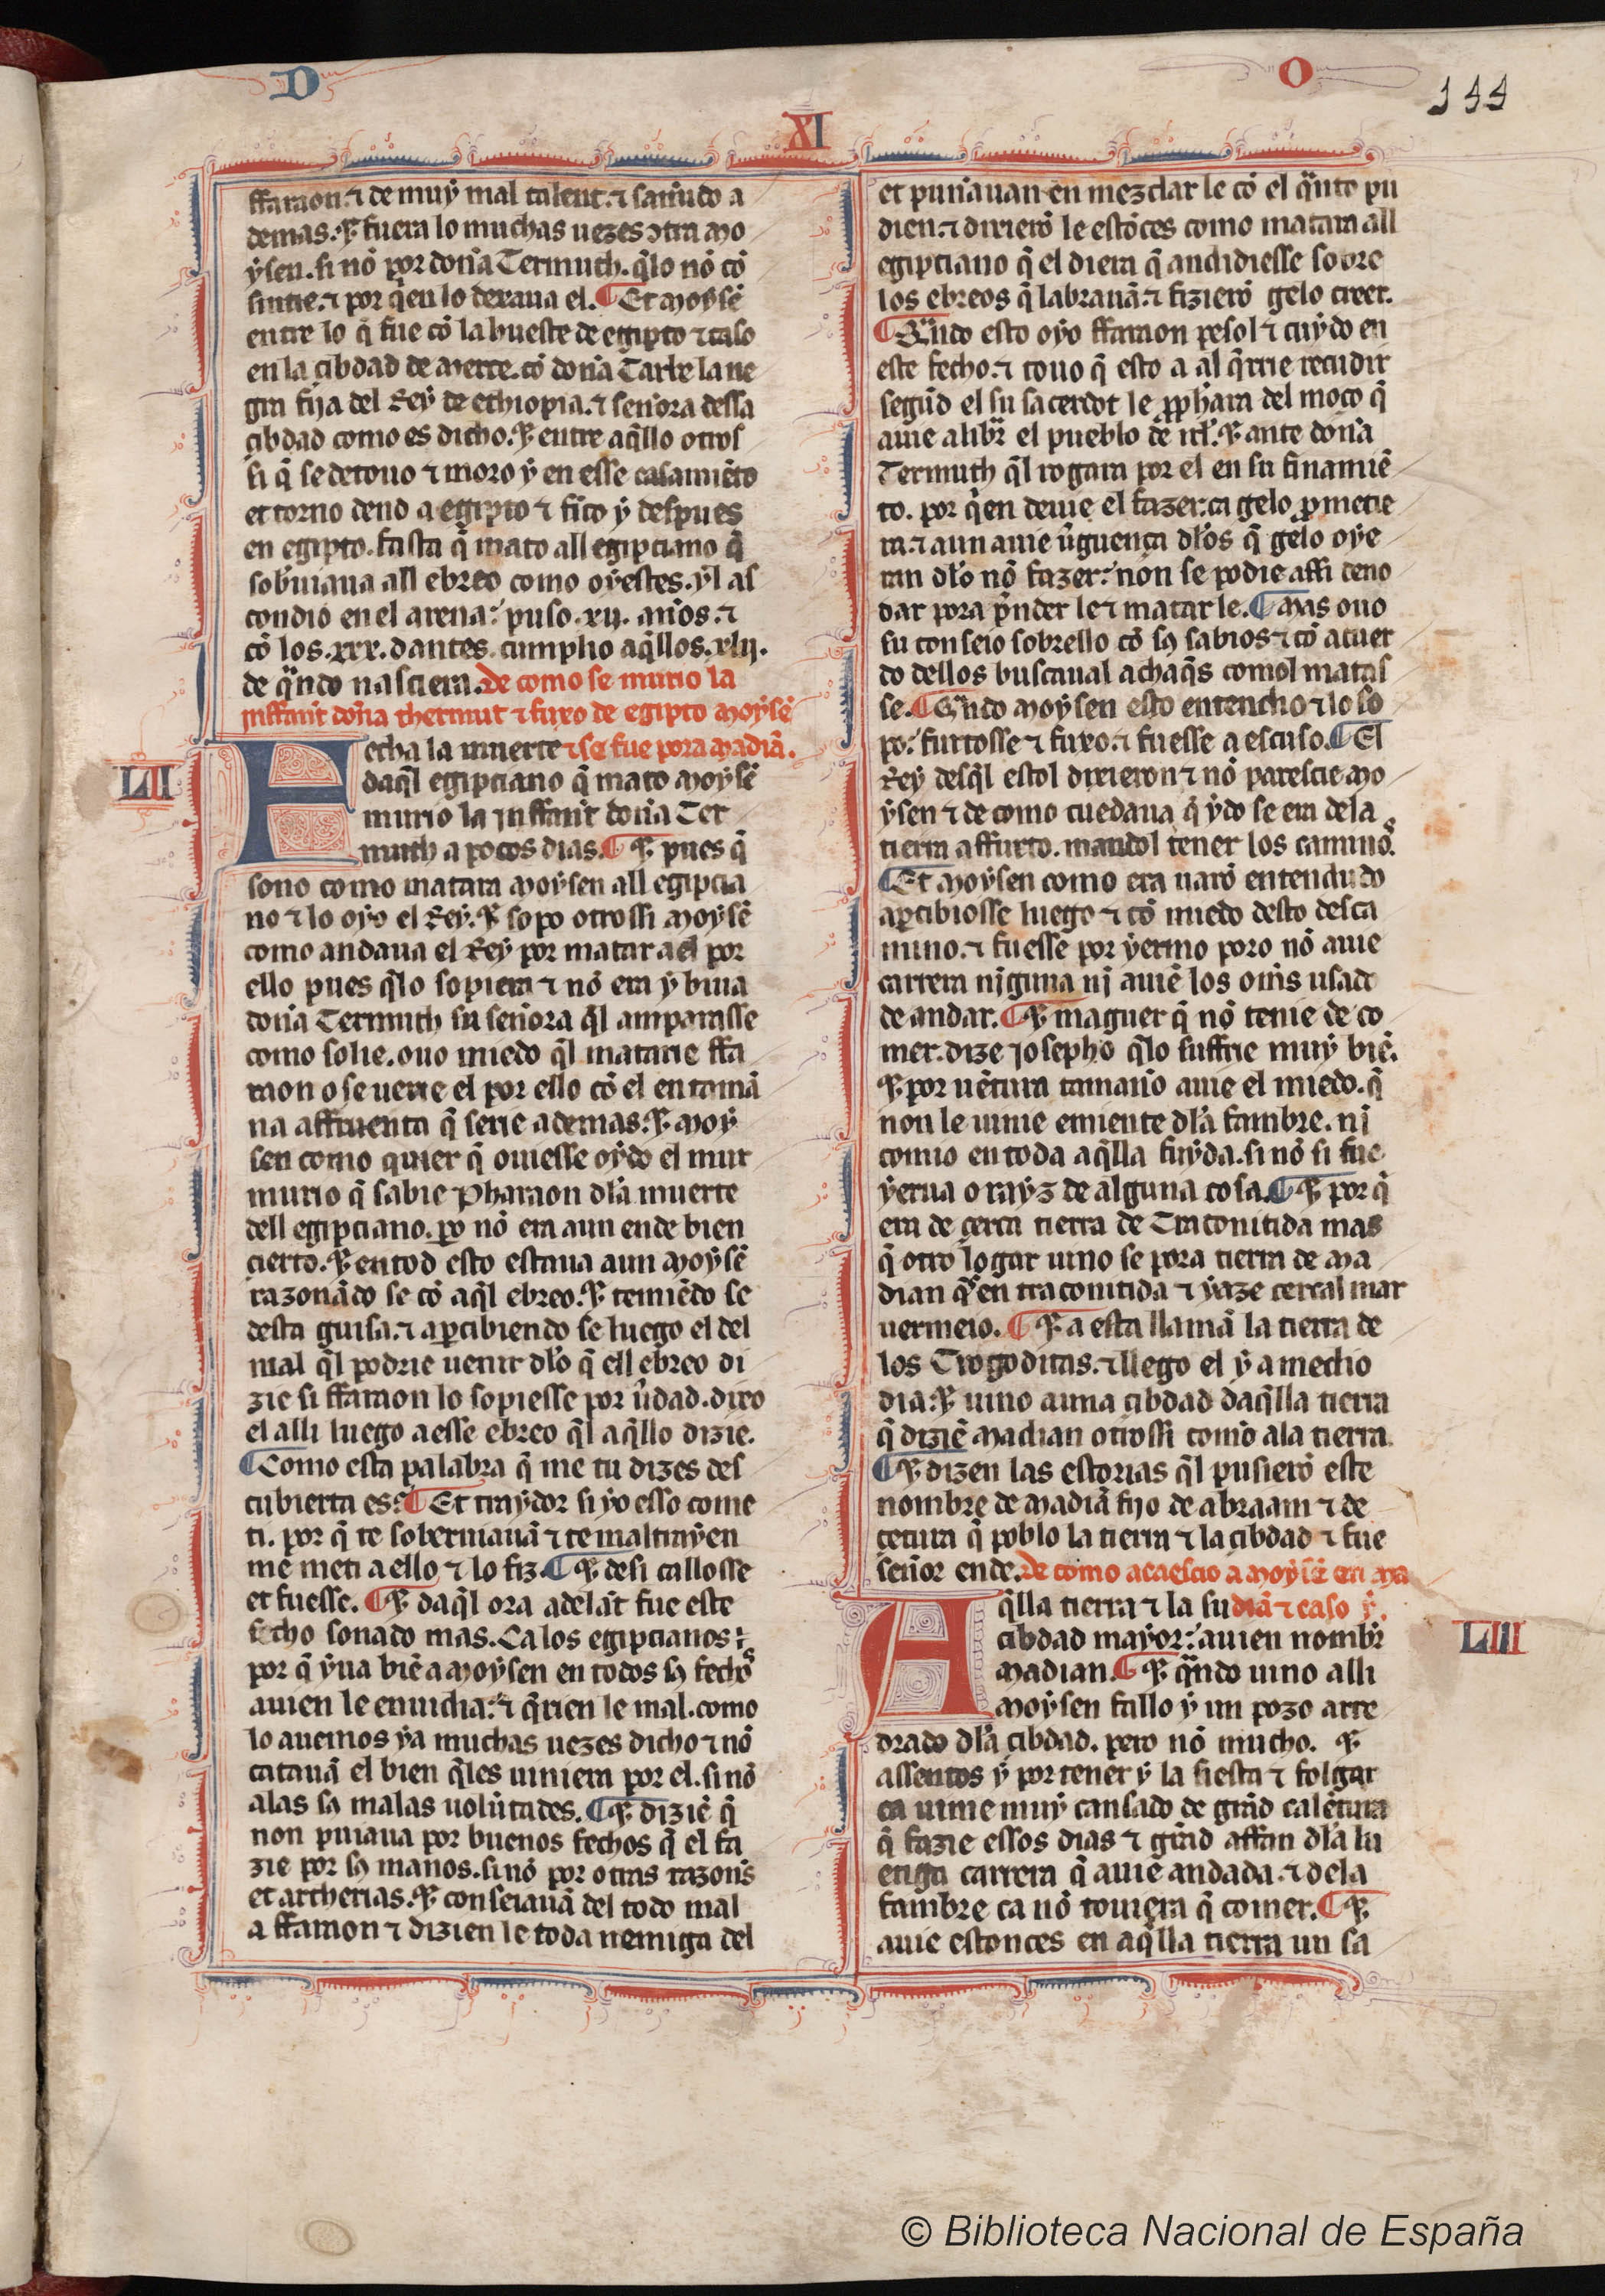 D
O
144
XI
ffaraon. ⁊ de muẏ mal talent. ⁊ sañudo a
demas. ⁊ fuera lo muchas uezes ↄtra Mo
ẏsen. si nõ por doña Termuth. q̃lo nõ cõ
sintie. ⁊ por q̃en lo dexaua el. ¶ Et Moẏsẽ
entre lo q̃ fue cõ la hueste de egipto ⁊ caso
en la cibdad de Merre. cõ doña Tarbe la ne
gra fija del Reẏ de ethiopia. ⁊ señora dessa
cibdad como es dicho. ⁊ entre aq̃llo otros
si q̃ se detouo ⁊ moro ẏ en esse casamiẽto
et torno dend a egipto ⁊ fico ẏ despues
en egipto. fasta q̃ mato all egipciano q̃
sob̃uiaua all ebreo como oẏestes. ẏl as
condio en el arena: puso .xij. años. ⁊
cõ los .xxx. dantes. cumplio aq̃llos .xlij.
de q̃ndo nasciera. de como se murio la
jnffant doña thermut ⁊ fuxo de egipto Moẏsẽ
Fecha la muerte ⁊ se fue pora Madiã.
LII
daq̃l egipciano q̃ mato Moẏsẽ
murio la jnffant doña Ter
muth a pocos dias. ¶ ⁊ pues q̃
sono como matara Moẏsen all egipcia
no ⁊ lo oẏo el Reẏ. ⁊ sopo otrossi Moẏsẽ
como andaua el Reẏ por matar a el por
ello pues q̃lo sopiera ⁊ nõ era ẏ biua
doña Termuth su señora q̃l amparasse
como solie. ouo miedo q̃l matarie ffa
raon o se uerie el por ello cõ el en tamã
na affruenta q̃ serie ademas. ⁊ Moẏ
sen como quier q̃ ouiesse oẏdo el mur
murio q̃ sabie Pharaon dl̃a muerte
dell egipciano. p̱o nõ era aun ende bien
cierto. ⁊ en tod esto estaua aun Moẏsẽ
razonãdo se cõ aq̃l ebreo. ⁊ temiẽdo se
desta guisa. ⁊ ap̱cibiendo se luego el del
mal q̃l podrie uenir dl̃o q̃ ell ebreo di
zie si ffaraon lo sopiesse por ũdad. dixo
el alli luego a esse ebreo q̃l aq̃llo dizie.
¶ Como esta palabra q̃ me tu dizes des
cubierta es: ¶ Et traẏdor si ẏo esso come
ti. por q̃ te soberuiauã ⁊ te maltraẏen
me meti a ello ⁊ lo fiz. ¶ ⁊ desi callosse
et fuesse. ¶ ⁊ daq̃l ora adelãt fue este
fecho sonado mas. Ca los egipcianos:
por q̃ ẏua biẽ a Moẏsen en todos sꝯ fechos
auien le enuidia: ⁊ q̃rien le mal. como
lo auemos ẏa muchas uezes dicho ⁊ nõ
catauã el bien q̃les uiniera por el. si nõ
a las sꝯ malas uolũtades. ¶ ⁊ diziẽ q̃
non puiaua por buenos fechos q̃ el fa
zie por sꝯ manos. si nõ por otras razoñs
et artherias. ⁊ conseiauã del todo mal
a ffaraon ⁊ dizien le toda nemiga del
et punauan en mezclar le cõ el q̃nto pu
dien. ⁊ dixierõ le estõces como matara all
egipciano q̃ el diera q̃ andidiesse sobre
los ebreos q̃ labrauã. ⁊ fizierõ gelo creer.
¶ Q̃ndo esto oẏo ffaraon pesol ⁊ cuẏdo en
este fecho. ⁊ touo q̃ esto a al q̃rrie recudir
segũd el su sacerdot le p̱ph̃ara del moço q̃
auie a libr̃ el pueblo de irl̃. ⁊ ante doña
Termuth q̃l rogara por el en su finamiẽ
to. por q̃en deuie el fazer: ca gelo p̱metie
ra. ⁊ aun auie ũguença dl̃os q̃ gelo oẏe
ran dl̃o nõ fazer: non se podie assi deno
dar pora p̃nder le ⁊ matar le. ¶ Mas ouo
su conseio sobrello cõ sꝯ sabios ⁊ cõ acuer
do dellos buscaual achaq̃s comol matas
se. ¶ Q̃ndo Moẏsen esto entendio ⁊ lo so
po: furtosse ⁊ fuxo. ⁊ fuesse a escuso. ¶ El
Reẏ desq̃l estol dixieron ⁊ nõ parescie Mo
ẏsen ⁊ de como cuedaua q̃ ẏdo se era dela
tierra affurto. mandol tener los caminos.
¶ Et Moẏsen como era uarõ entendudo
ap̱cibiosse luego ⁊ cõ miedo desto desca
mino. ⁊ fuesse por ẏermo poro nõ auie
carrera nj̃guna nj auiẽ los om̃s usado
de andar. ¶ ⁊ maguer q̃ nõ tenie de co
mer. dize josepho q̃lo suffrie muẏ biẽ.
⁊ por uẽtura tamaño auie el miedo. q̃
non le uinie emiente dl̃a fambre. nj
comio en toda aq̃lla fuẏda. si nõ si fue
ẏerua o raẏz de alguna cosa. ¶ ⁊ por q̃
era de çerca tierra de Traconitida mas
q̃ otro logar uino se pora tierra de Ma
dian q̃ es en traconitida ⁊ ẏaze cercal mar
uermeio. ¶ ⁊ a esta llamã la tierra de
los Trogoditas. ⁊ llego el ẏ a medio
dia: ⁊ uino a una cibdad daq̃lla tierra
q̃ diziẽ Madian otrossi como a la tierra.
¶ ⁊ dizen las estorias q̃l pusierõ este
nombre de Madiã fijo de abraam ⁊ de
cetura q̃ poblo la tierra ⁊ la cibdad ⁊ fue
señor ende. de como acaescio a Moẏsẽ en Ma
Aq̃lla tierra ⁊ la su diã ⁊ caso ẏ.
cibdad maẏor: auien nombr̃
LIII
Madian. ¶ ⁊ q̃ndo uino alli
Moẏsen fallo ẏ un pozo arre
drado dl̃a cibdad. pero nõ mucho. ⁊
assentos ẏ por tener ẏ la siesta ⁊ folgar
ca uinie muẏ cansado de grãd calẽtura
q̃ fazie essos dias ⁊ grãd affan dl̃a lu
enga carrera q̃ auie andada. ⁊ dela
fambre ca nõ touiera q̃ comer. ¶ ⁊
auie estonces en aq̃lla tierra un sa
© Biblioteca Nacional de España